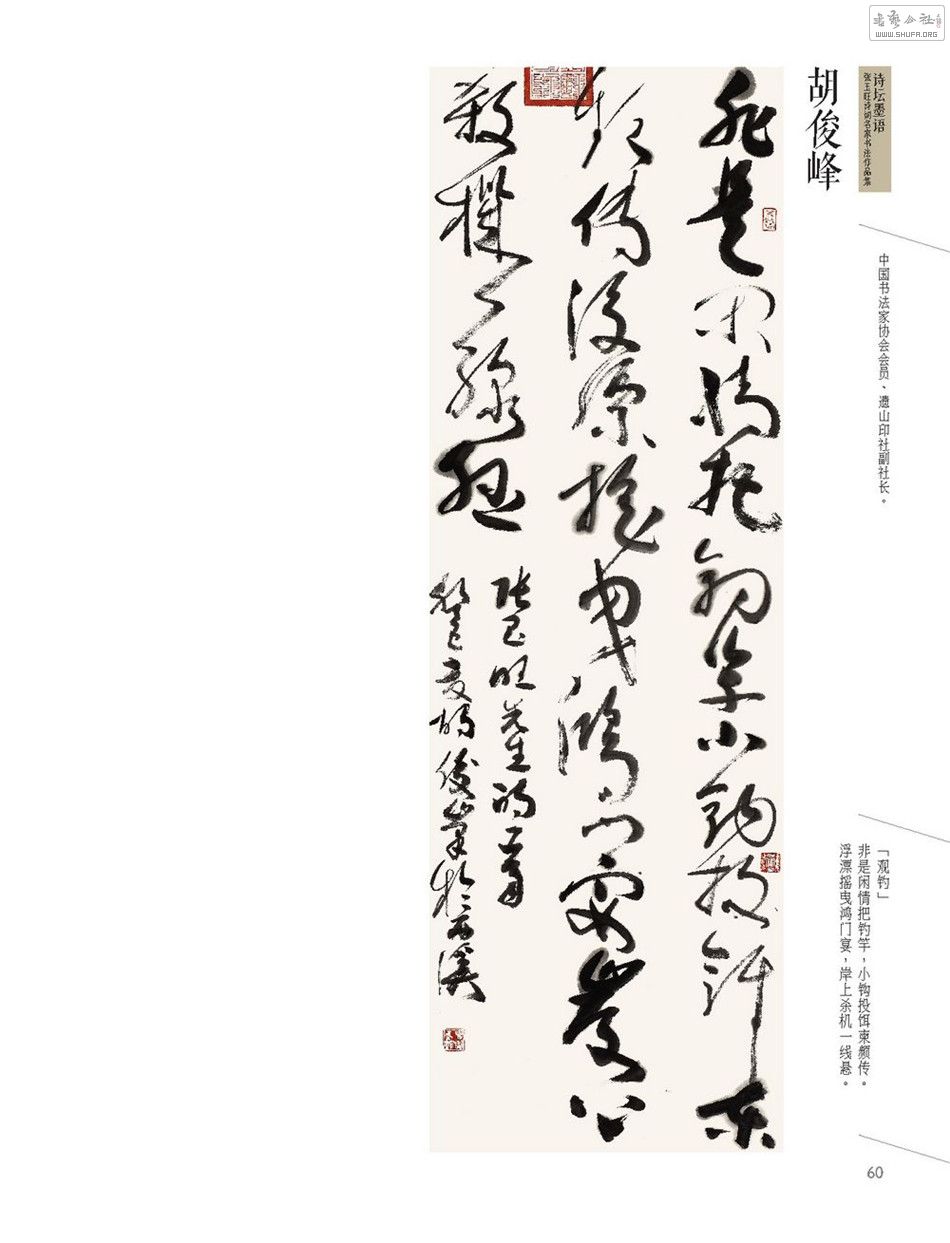 书艺公社
WWW.SHUFA.ORG
诗坛墨语
张玉旺诗词名家书法作品集
胡俊峰
中国书法家协会会员、遗山印社副社长。
非是闲情把钓竿小钩投饵柬
频传浮漂摇曳鸿门宴岸上
杀机一线悬
张玉旺先生诗一首
癸巳夏时俊峰于溪
「观钓」
非是闲情把钓竿，小钩投饵柬频传。
浮漂摇曳鸿门宴，岸上杀机一线悬。
60